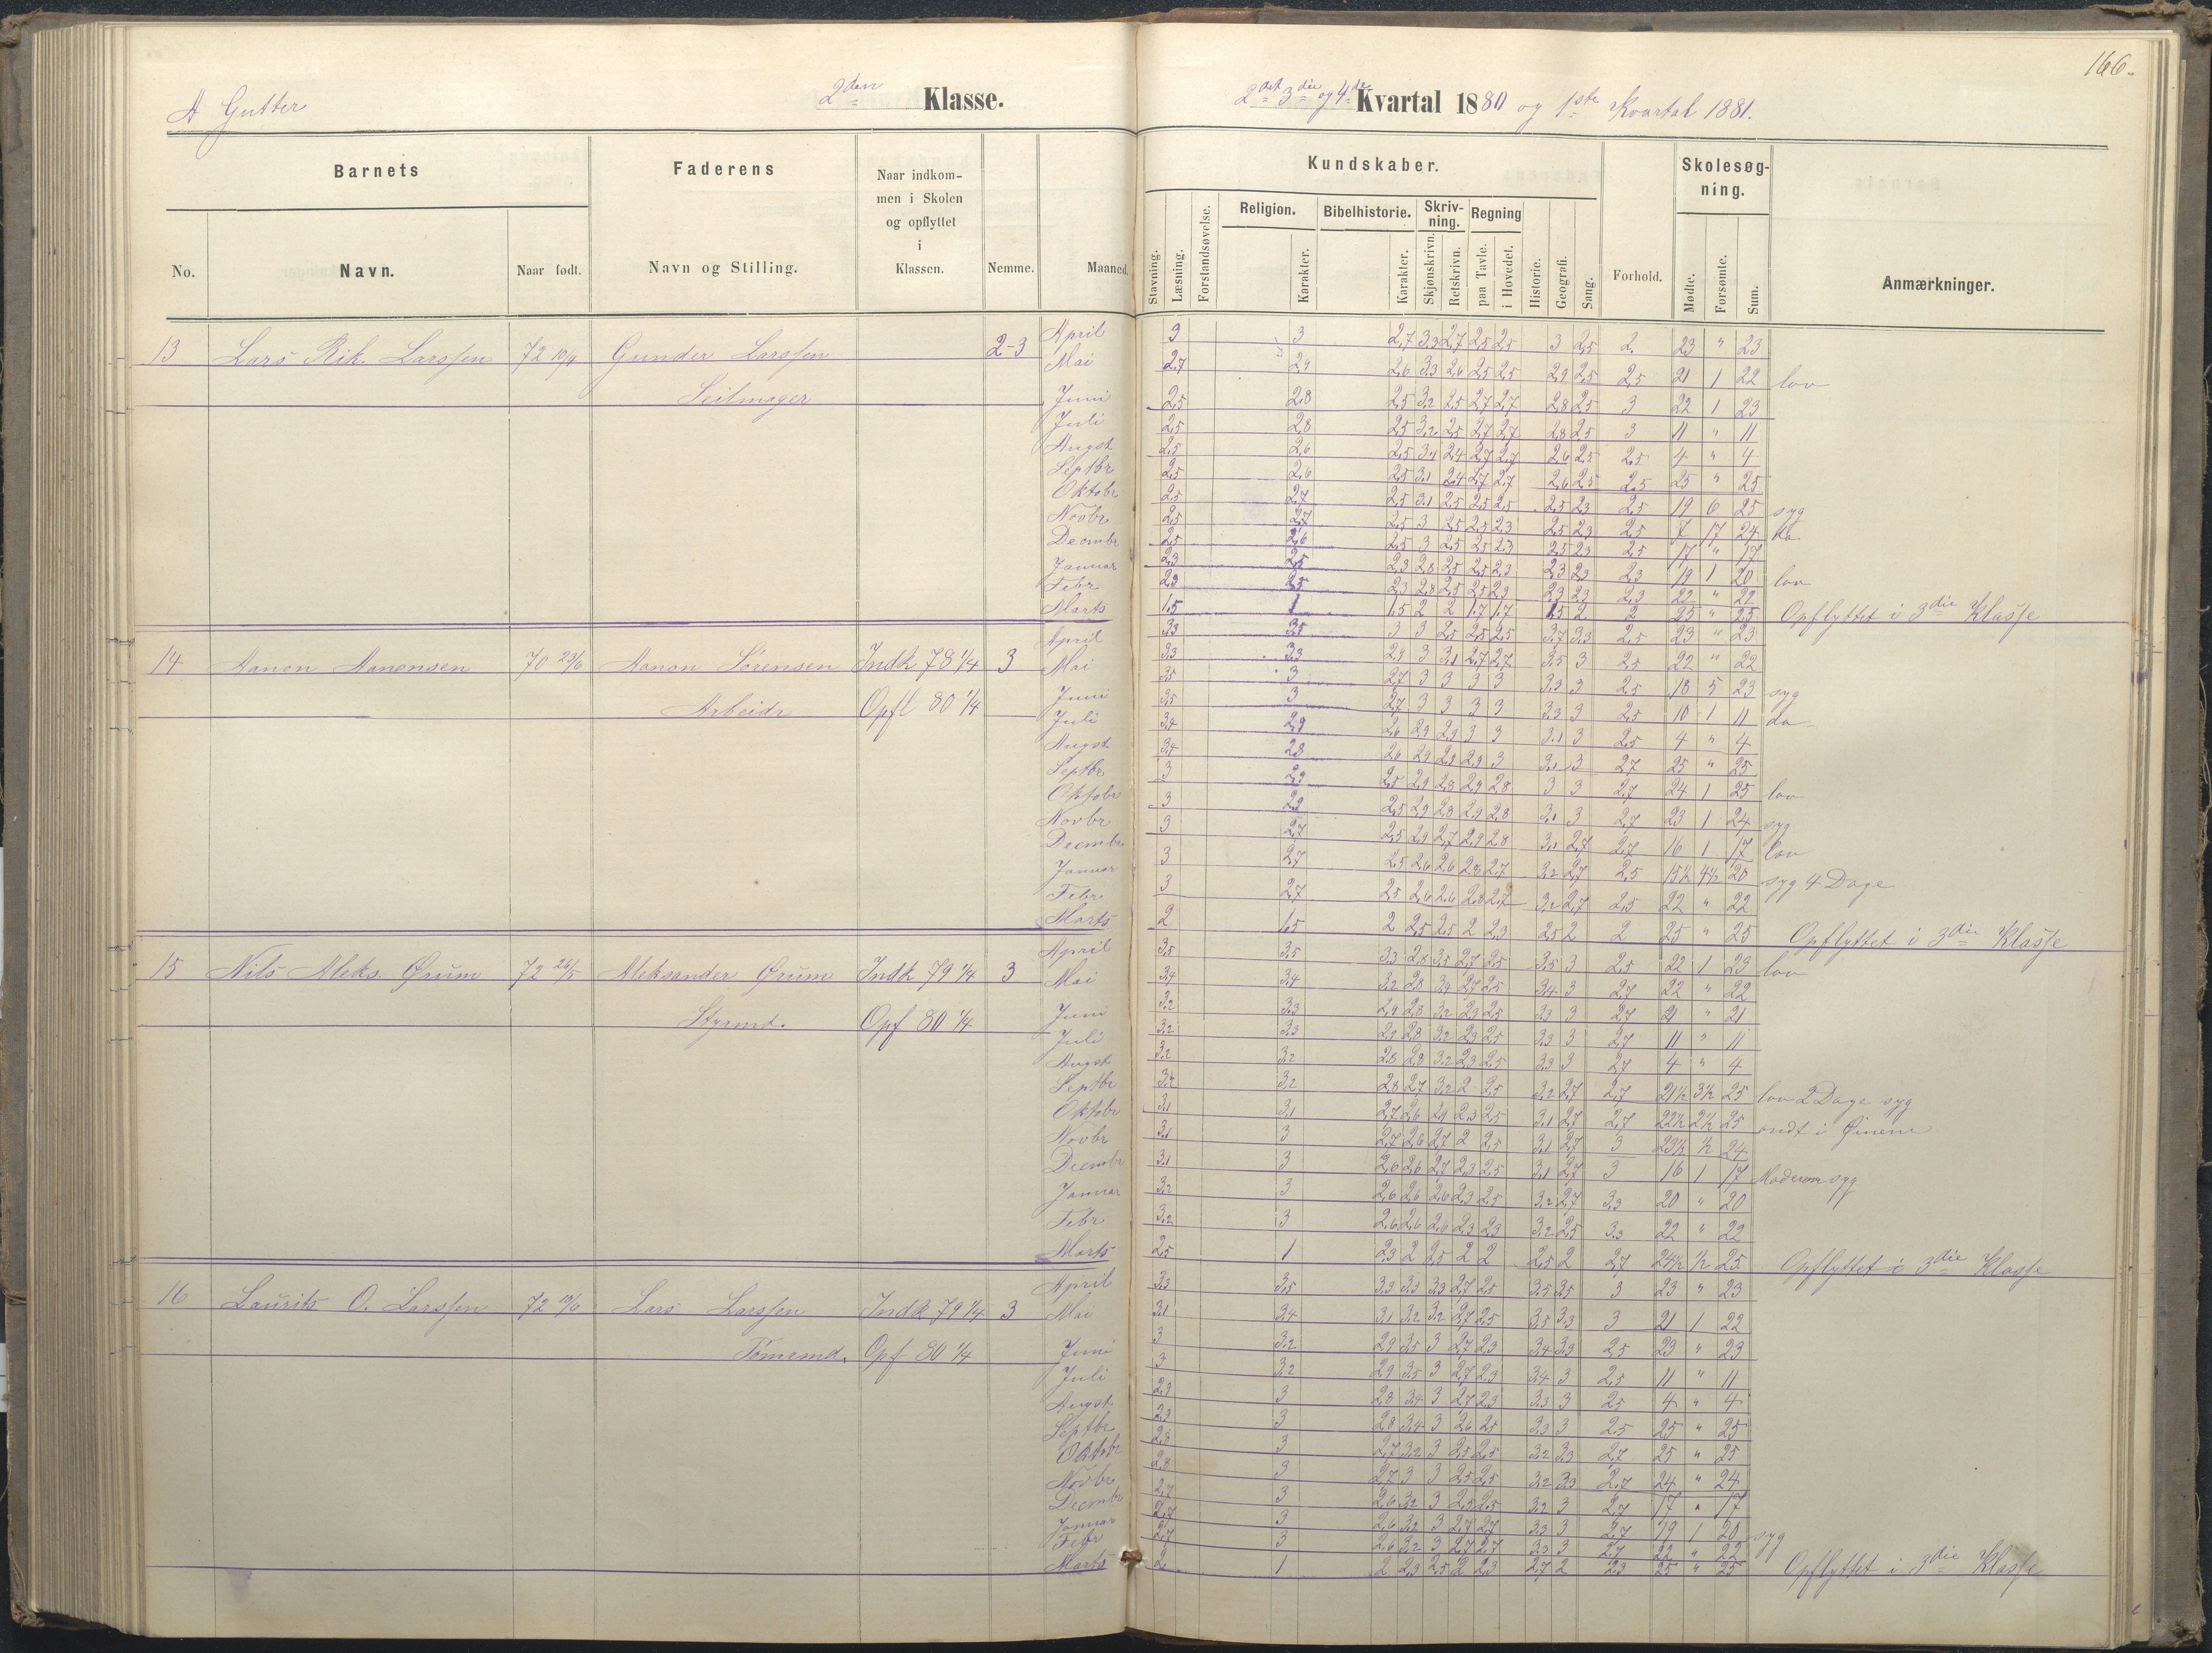 166.
A Gutter 2den Klasse. 2det 3die og 4de Kvartal 1880 og 1ste Kvartal 1881.
Barnets Faderens Naar indkommen i Skolen og opflyttet i Klassen. Nemme. Maaned. Kundskaber. Forhold. Skolesøgning. Anmærkninger.
No. Navn. Naar født. Navn og Stilling.
Stavning. Læsning. Forstandsøvelse. Religion. Karakter. Bibelhistorie. Karakter. Skrivning. Skjønskrivn. Retskrivn. Regning paa Tavle. i Hovedet. Historie. Geografi. Sang. Mødte. Forsømte. Sum.
13 Lars Rik. Larssen 72 10/4 Gunder Larssen 2-3
Seilmager
April 3 3 2,7 3,3 2,7 2,5 2,5 3 2,5 2. 23 " 23
Mai 2,7 2,9 2,6 3,3 2,6 2,5 2,5 2,9 2,5 2,5 21 1 22 lov
Juni 2,5 2,8 2,5 3,2 2,5 2,7 2,7 2,8 2,5 3 22 1 23
Juli 2,5 2,8 2,5 3,2 2,5 2,7 2,7 2,8 2,5 3 11 " 11
Augst 2,5 2,6 2,5 3,1 2,4 2,7 2,7 2,6 2,5 2,5 4 " 4
Septbr 2,5 2,6 2,5 3,1 2,4 2,7 2,7 2,6 2,5 2,5 25 " 25
Oktobr 2,5 2,7 2,5 3,1 2,5 2,5 2,5 2,5 2,3 2,5 19 6 25 syg
Novbr 2,5 2,7 2,5 3 2,5 2,5 2,3 2,5 2,3 2,5 7 17 24 do
Decmbr 2,5 2,6 2,5 3 2,5 2,5 2,3 2,5 2,3 2,5 17 " 17
Januar 2,3 2,5 2,3 2,8 2,5 2,5 2,3 2,3 2,3 2,3 19 1 20 lov
Febr 2,3 2,5 2,3 2,8 2,5 2,5 2,3 2,3 2,3 2,3 22 " 22
Marts 1,5 1 1,5 2 2 1,7 1,7 1,5 2 2 25 " 25 Opflyttet i 3die Klasse
14 Aanon Aanonsen 70 23/6 Aanon Sørensen Indk 78 1/4 3
Arbeidr Opfl 80 1/4
April 3,3 3,5 3 3 2,5 2,5 2,5 3,7 3,3 2,5 23 " 23
Mai 3,3 3,3 2,9 3 3,1 2,7 2,7 3,5 3 2,5 22 " 22
Juni 3,5 3 2,7 3 3 3 3 3,3 3 2,5 18 5 23 syg
Juli 3,5 3 2,7 3 3 3 3 3,3 3 2,5 10 1 11 do
Augst. 3,4 2,9 2,6 2,9 2,9 3 3 3,1 3 2,5 4 " 4
Septbr 3,4 2,8 2,6 2,9 2,9 2,9 3 3,1 3 2,7 25 " 25
Oktobr 3 2,9 2,5 2,9 2,8 2,9 2,8 3 3 2,7 24 1 25 lov
Novbr 3 2,9 2,5 2,9 2,8 2,9 2,8 3,1 3 2,7 23 1 24 syg
Decmbr. 3 2,7 2,5 2,9 2,7 2,9 2,8 3,1 2,7 2,7 16 1 17 lov
Januar 3 2,7 2,5 2,6 2,6 2,8 2,7 3,2 2,7 2,5 15½ 4½ 20 syg 4 Dage
Febr 3 2,7 2,5 2,6 2,6 2,8 2,7 3,2 2,7 2,5 22 " 22
Marts 2 1,5 2 2,5 2,5 2 2,3 2,5 2 2 25 " 25 Opflyttet i 3die Klasse
15 Nils Aleks. Ørum 72 26/5 Aleksander Ørum Indk 79 1/4 3
Styrmd. Opf 80 1/4
April 3,5 3,5 3,3 2,8 3,5 2,7 2,5 3,5 3 2,5 22 1 23 lov
Mai 3,4 3,4 3,2 2,8 3,4 2,7 2,5 3,4 3 2,7 22 " 22
Juni 3,2 3,3 2,9 2,8 3,2 2,3 2,5 3,3 3 2,7 21 " 21
Juli 3,2 3,3 2,9 2,8 3,2 2,3 2,5 3,3 3 2,7 11 " 11
Augst 3,2 3,2 2,8 2,8 3,2 2,3 2,5 3,3 3 2,7 4 " 4
Septbr 3,2 3,2 2,8 2,7 3,2 2 2,5 3,2 2,7 2,7 21½ 3½ 25 lov 2 Dage syg
Oktobr 3,1 3,1 2,7 2,6 2,9 2,3 2,5 3,1 2,7 2,7 22½ 2½ 25 ondt i Øinene
Novbr 3,1 3 2,7 2,6 2,7 2 2,5 3,1 2,7 3 23½ ½ 24
Decmbr 3,1 3 2,6 2,6 2,7 2,3 2,5 3,1 2,7 3 16 1 17 Moderen syg
Januar 3,2 3 2,6 2,6 2,6 2,3 2,5 3,2 2,7 3,3 20 " 20
Febr 3,2 3 2,6 2,6 2,6 2,3 2,3 3,2 2,5 3,3 22 " 22
Marts 2,5 1 2,3 2 2,5 2 2 2,5 2 2,7 24½ ½ 25 Opflyttet i 3die Klasse
16 Laurits O. Larssen 72 10/6 Lars Larssen Indk 79 1/4 3
Tømrmd. Opf 80 1/4
April 3,3 3,5 3,3 3,3 3,3 2,7 2,5 3,5 3,5 3 23 " 23
Mai 3,1 3,4 3,1 3,2 3,2 2,7 2,5 3,5 3,3 3 21 1 22
Juni 3 3,2 2,9 3,5 3 2,7 2,3 3,4 3,3 2,5 23 " 23
Juli 3 3,2 2,9 3,5 3 2,7 2,3 3,4 3 2,5 11 " 11
Augst. 2,9 3 2,8 3,4 3 2,7 2,3 3,3 3 2,5 4 " 4
Septbr 2,9 3 2,8 3,4 3 2,6 2,5 3,3 3 2,5 25 " 25
Oktobr 2,8 3 2,7 3,2 3 2,5 2,5 3,2 3,3 2,7 25 " 25
Novbr 2,8 3 2,7 3 3 2,5 2,5 3,2 3,3 2,7 24 " 24
Decmbr 2,7 3 2,6 3,2 3 2,5 2,5 3,2 3 2,7 17 " 17
Januar 2,7 3 2,6 3,2 3 2,7 2,7 3,3 3 2,7 19 1 20 syg
Febr 2,7 3 2,6 3,2 3 2,7 2,7 3,3 3 2,7 22 " 22
Marts 2. 1 2 2,3 2,5 2 2,3 2,7 2 2,3 25 " 25 Opflyttet i 3die Klasse